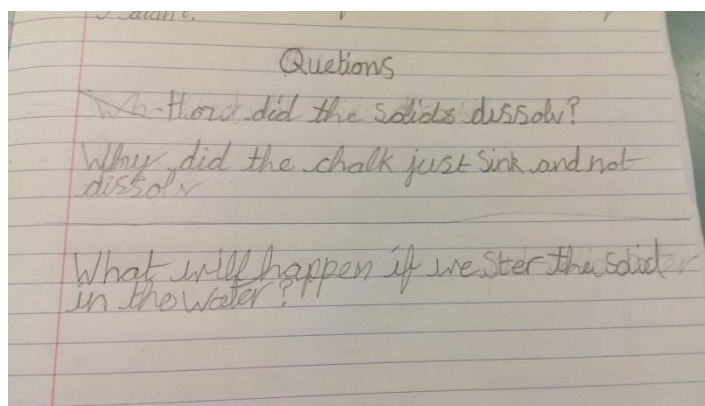 Quetions
How did the solids dissolv?
Why did the chalk just sink and not
dissolv
What will happen if we ster the solid
in the water?